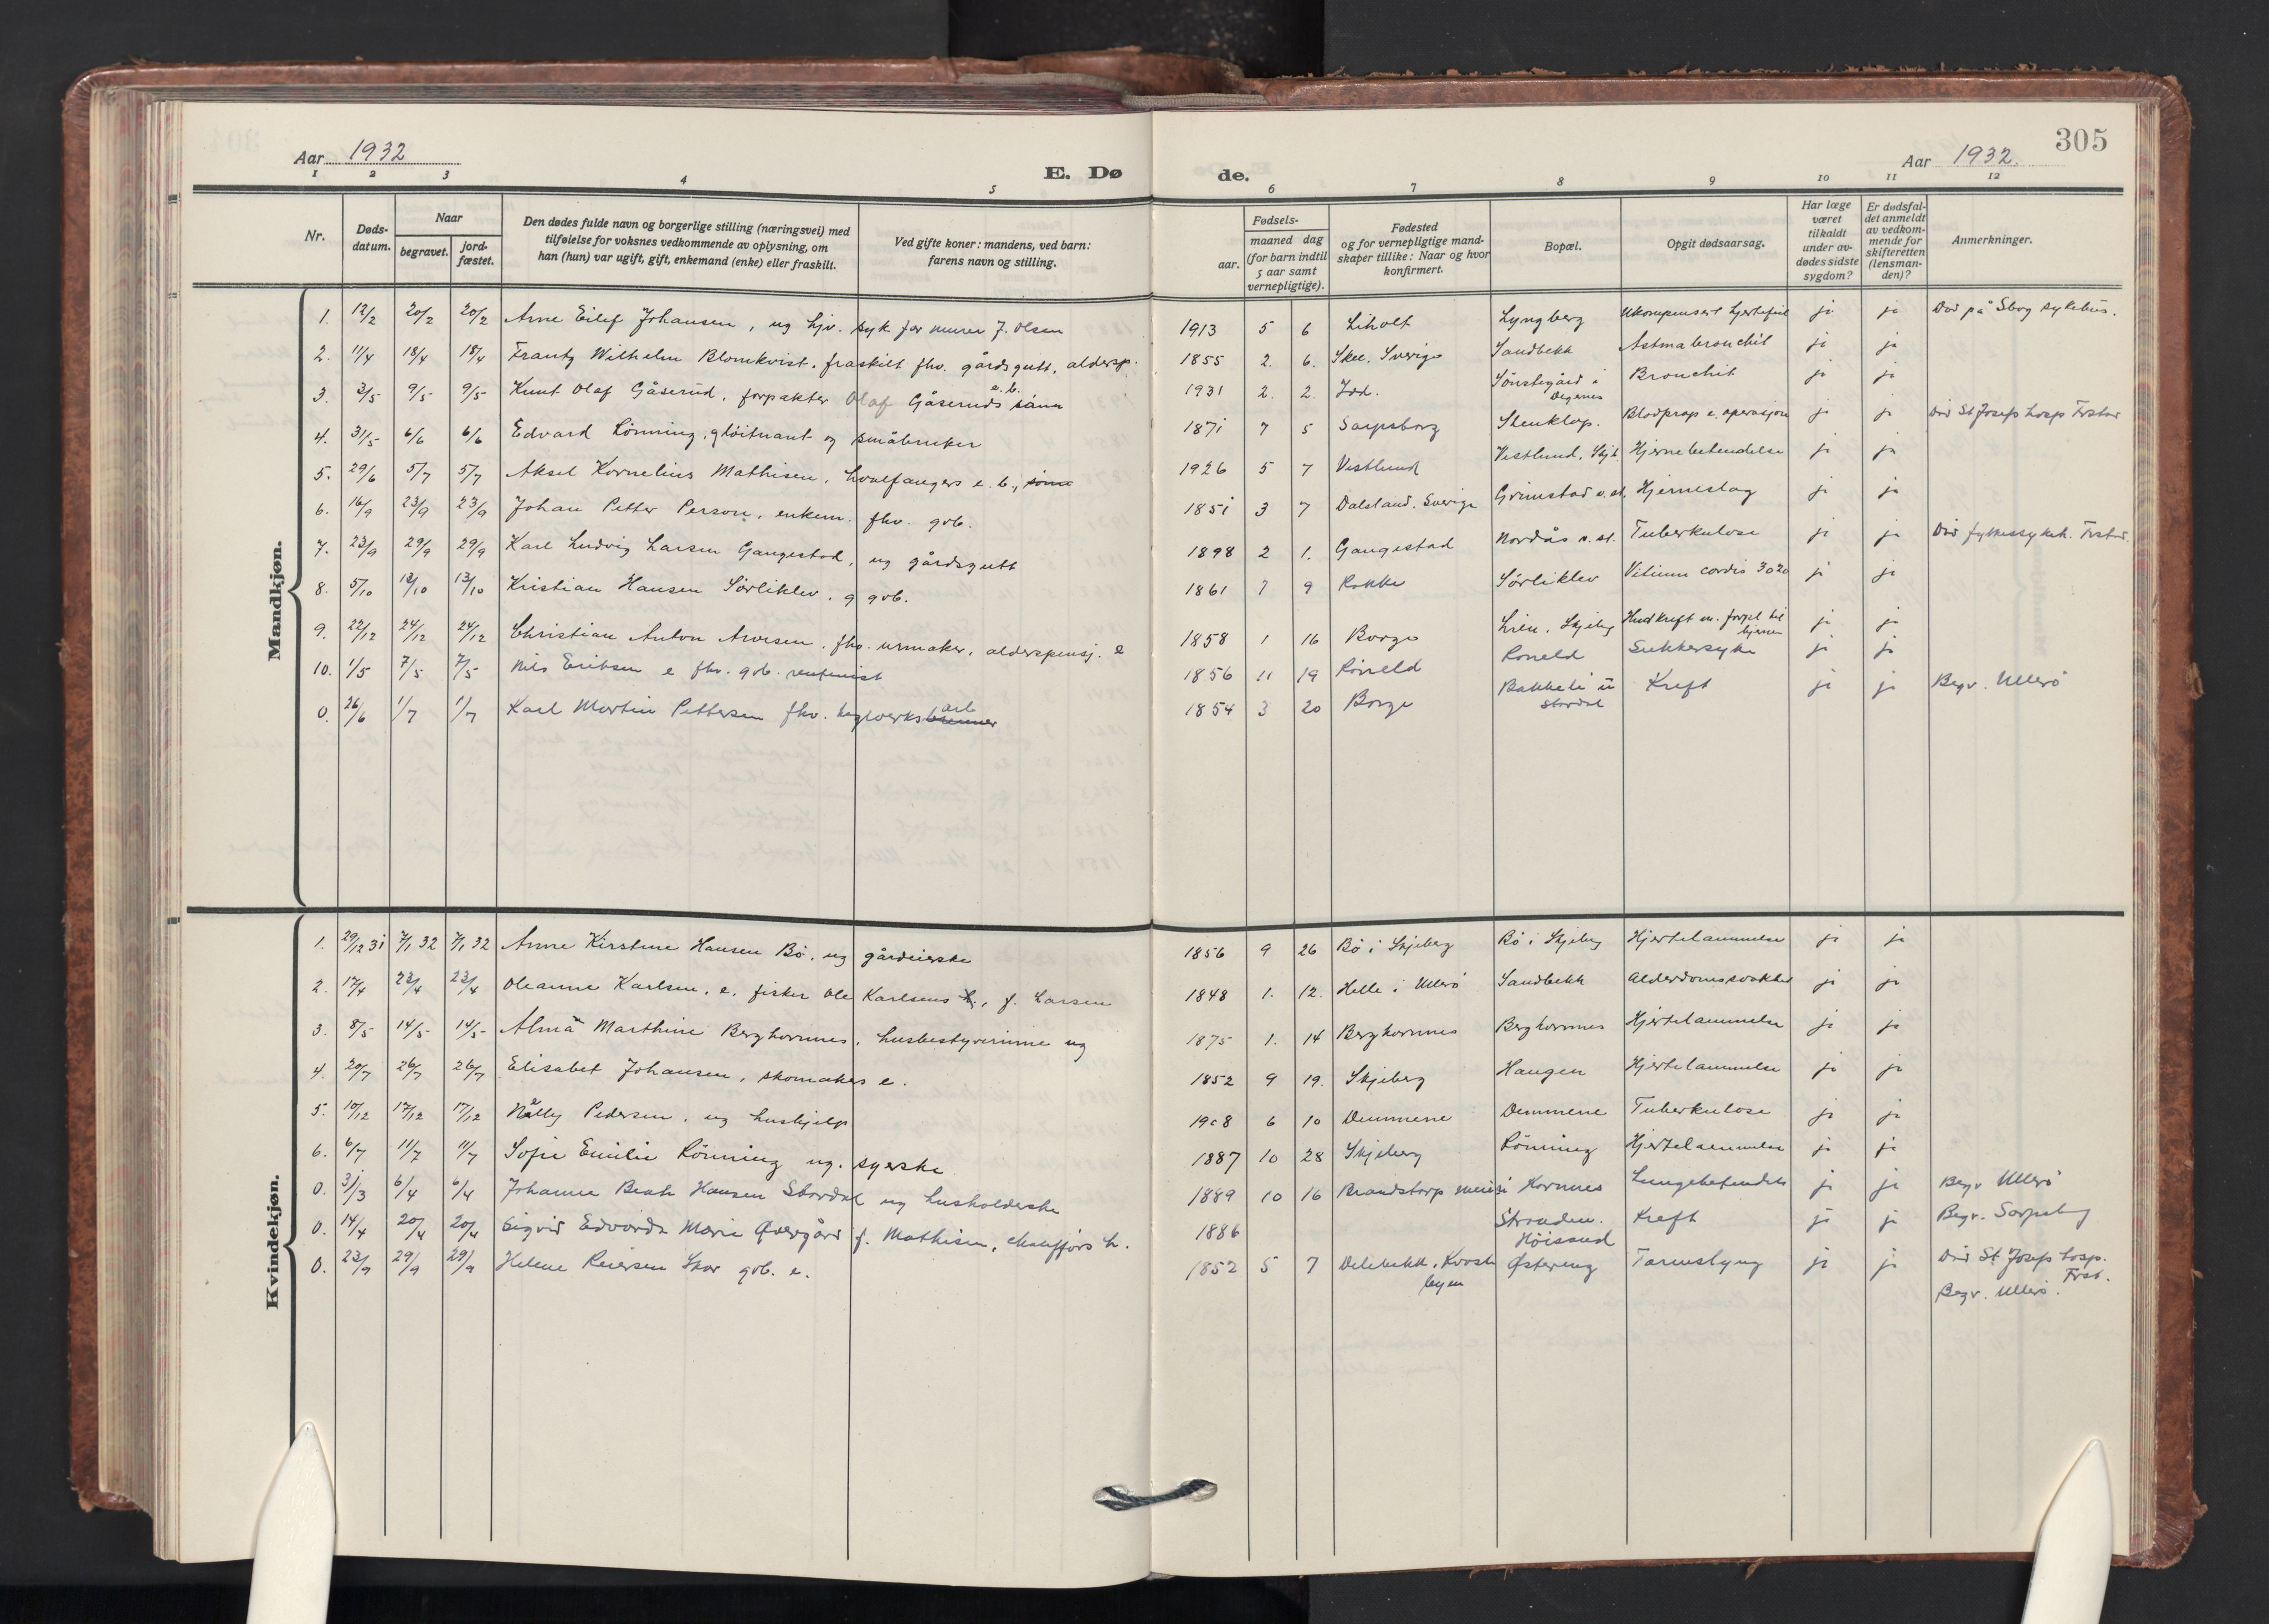 305
Aar 1932
E. Døde.
Aar 1932.
1 2 3 4 5 6 7 8 9 10 11 12
Nr.
Døds-datum.
Naar
begravet.
jord-fæstet.
Den dødes fulde navn og borgerlige stilling (næringsvei) med
tilføielse for voksnes vedkommende av oplysning, om
han (hun) var ugift, gift, enkemand (enke) eller fraskilt.
Ved gifte koner: mandens, ved barn:
farens navn og stilling.
Fødsels-
aar.
maaned dag
(for barn indtil
5 aar samt
vernepligtige).
Fødested
og for vernepligtige mand-
skaper tillike: Naar og hvor
konfirmert.
Bopæl.
Opgit dødsaarsag.
Har læge
været
tilkaldt
under av-
dødes sidste
sygdom?
Er dødsfal-
det anmeldt
av vedkom-
mende for
skifteretten
(lensman-
den)?
Anmerkninger.
Mandkjøn.
1. 12/2 20/2 20/2 Arne Eilef Johansen, ug hjv. syk far murer J. Olsen 1913 5 6 Liholt Lyngberg Ukompensert hjertefeil ja ja Død på Sbog sykehus.
2. 11/4 18/4 18/4 Frantz Wilhelm Blomkvist, fraskilt fhv. gårdsgutt, aldersp. 1855 2. 6. Skee. Sverige Sandbekk Astmabronchit ja ja
3. 3/5 9/5 9/5 Knut Olaf Gåserud, forpakter Olaf Gåseruds e.b. sønn 1931 2. 2. Idd. Sönstegård i Degernes Bronchit ja ja
4. 31/5 6/6 6/6 Edvard Lönning, gløitnant og småbruker 1871 7 5 Sarpsborg Stenklop. Blodprop e. operasjon ja ja Död St Josefs hosp Frstad
5. 29/6 5/7 5/7 Aksel Kornelius Mathisen, hvalfangers e.b., sönn 1926 5 7 Vestlund Vestlund, Skjb. Hjernebetendelse ja ja
6. 16/9 23/9 23/9 Johan Petter Person, enkem. fhv. gob. 1851 3 7 Dalsland. Sverige Grimstad n. st. Hjerneslag ja ja
7. 23/9 29/9 29/9 Karl Ludvig Larsen Gangestad, ug gårdsgutt 1898 2 1. Gangestad Nordås n. st. Tuberkulose ja ja Död fylkessykeh. Frstad.
8. 5/10 13/10 13/10 Kristian Hansen Sörliklev. g gob. 1861 7 9 Rokke Sörliklev Vitium cordis 3020 ja ja
9. 22/12 24/12 24/12 Christian Anton Arvesen, fhv. urmaker, alderspensj. e 1858 1 16 Borge Lien, Skjeberg Hudkreft m. forpl. til hjernen ja ja
10. 1/5 7/5 7/5 Nils Eriksen e fhv. gob. rentenist 1856 11 19 Röneld Roneld Sukkersyke ja ja
0. 26/6 1/7 1/7 Karl Martin Pettersen fhv. teglverksbrenner arb 1854 3 20 Borge Bakkeli u Stordal Kreft ja ja Begr. Ullerö
Kvindekjøn.
1. 29/12 31 7/1 32 7/1 32 Anne Kirstine Hansen Bö, ug gårdeierske 1856 9 26 Bö i Skjeberg Bö i Skjeberg Hjertelammelse ja ja
2. 17/4 23/4 23/4 Oleanne Karlsen, e. fisker Ole Karlsens h., f. Larsen 1848 1. 12. Helle i Ullerö Sandbekk Alderdomssvakhet ja ja
3. 8/5 14/5 14/5 Alma Marthine Berghornnes, husbestyrerinne ug 1875 1. 14 Berghornnes Berghornnes Hjertelammelse ja ja
4. 20/7 26/7 26/7 Elisabet Johansen, skomakers e. 1852 9 19. Skjeberg Haugen Hjertelammelse ja ja
5. 10/12 17/12 17/12 Nelly Pedersen, ug hushjelp 1908 6 10 Demmene Demmene Tuberkulose ja ja
6. 6/7 11/7 11/7 Sofie Emilie Rönning ug. syerske 1887 10 28 Skjeberg Rönning Hjertelammelse ja ja
0. 31/3 6/4 6/4 Johanne Beate Hansen Stordal ug husholderske 1889 10 16 Brandstorp Hornnes Lungebetendels ja ja Begr Ullerö
0. 14/4 20/4 20/4 Sigrid Edvarda Marie Østergård f. Mathisen, chaufførs h. 1886 Stranden. Höisand Kreft ja ja Begr. Sarpsborg
0. 23/9 29/9 29/9 Helene Reiersen Skor gob. e. 1852 5 7 Delebekk, Østereng Tarmslyng ja ja Död St. Josefs hosp. Frst. Begr. Ullerö.